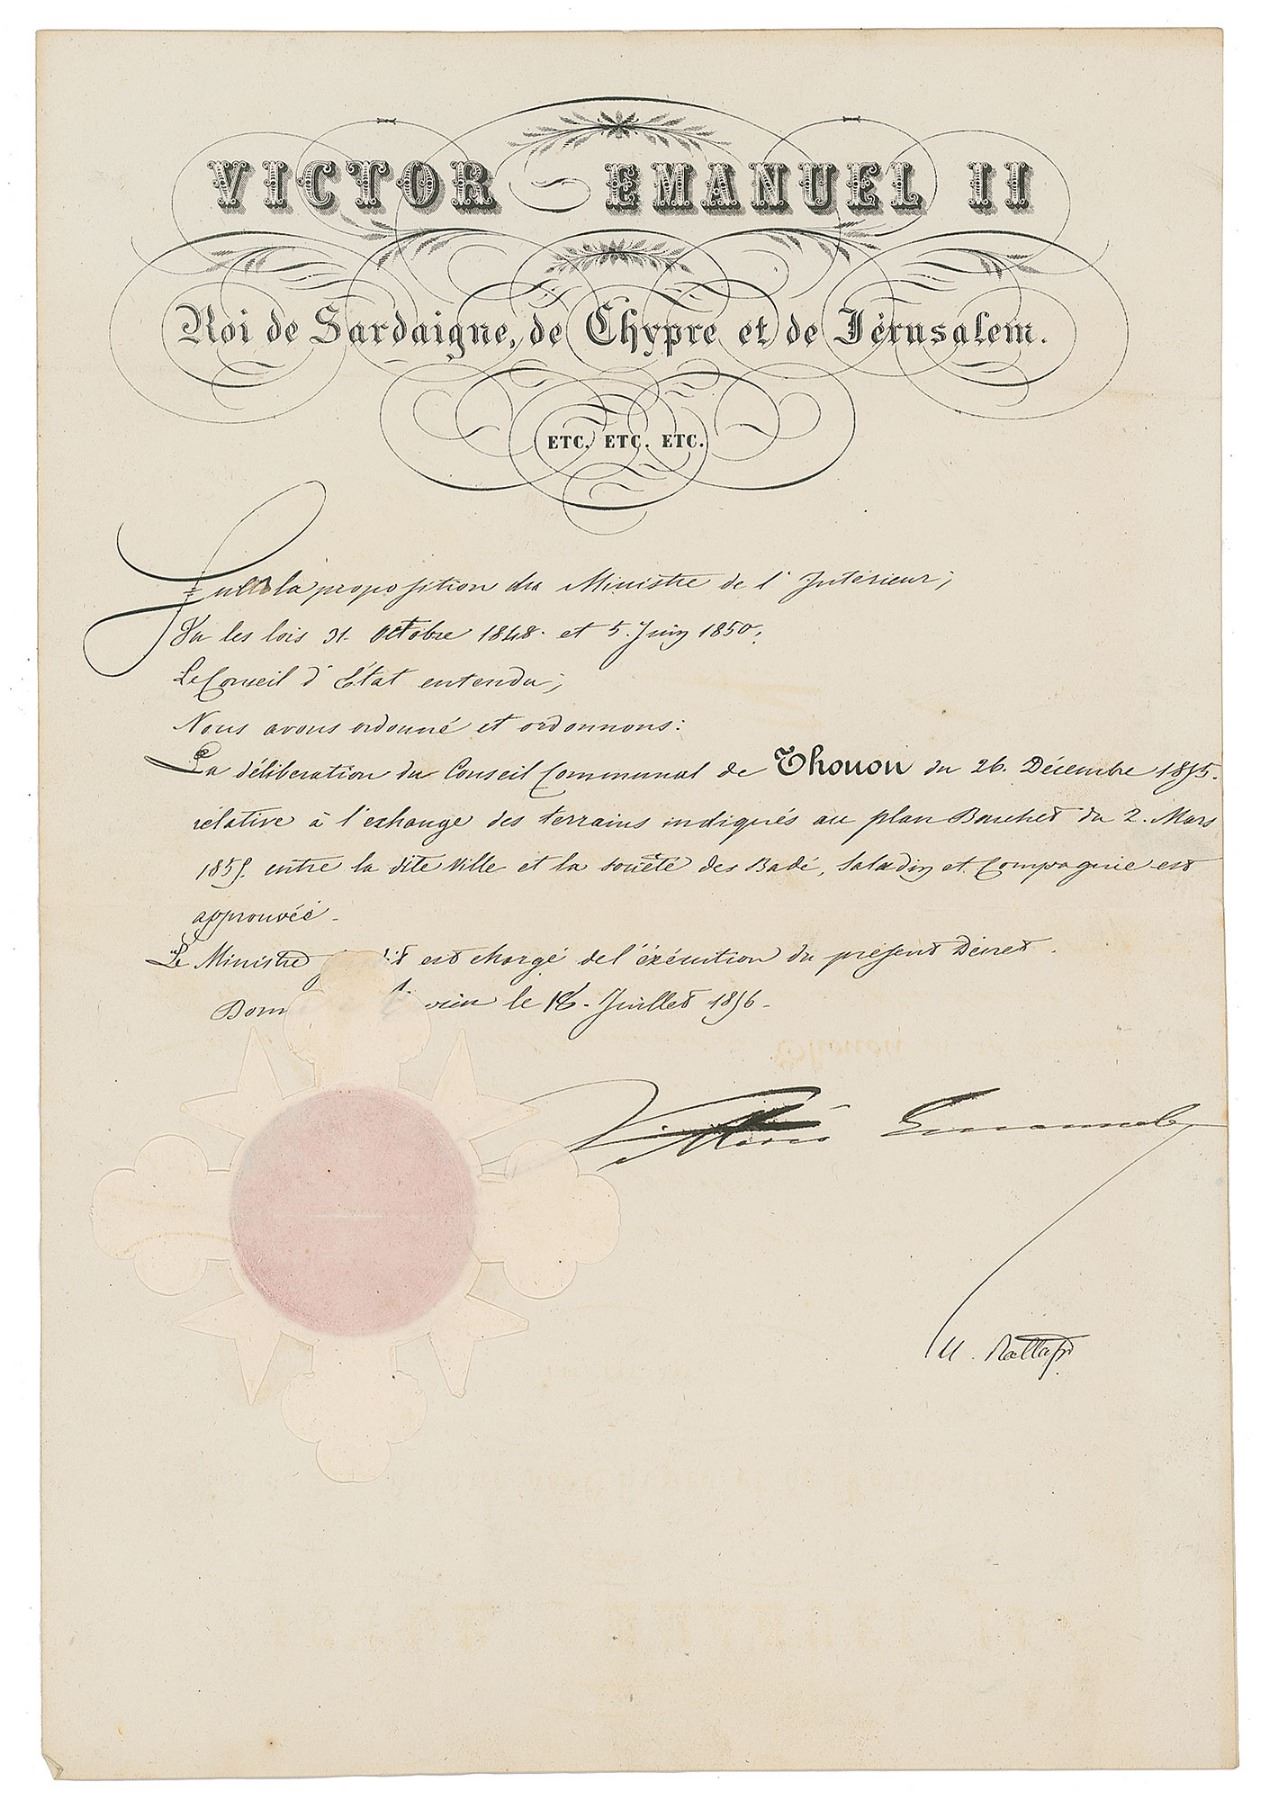 VICTOR EMANUEL II
Roi de Sardaigne, de Chypre et de Jérusalem.
ETC. ETC. ETC.
Sur la proposition du Ministre de l'Intérieur;
Vu les lois 31. Octobre 1848. et 5. Juin 1850;
Le Conseil d'État entendu;
Nous avons ordonné et ordonnons:
La déliberation du Conseil Communal de Thonon du 26. Décembre 1855.
rélative à l'exhange des terrains indiqués au plan du 2. Mars
1855. entre la dite Ville et la société des Saladin et Compagnie est
approuvée.
Le Ministre est chargé de l'éxécution du présent Décret.
le Juillet 1856.
Vittorio Emanuele
U. Rattazzi